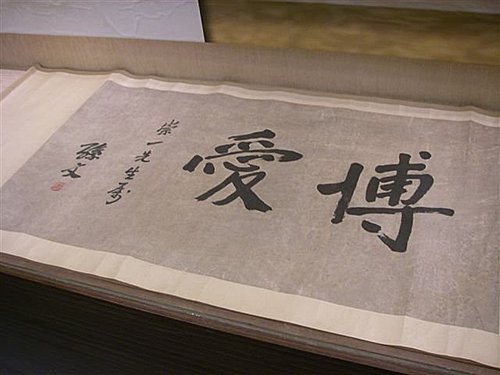 博愛
崇一先生屬
孫文